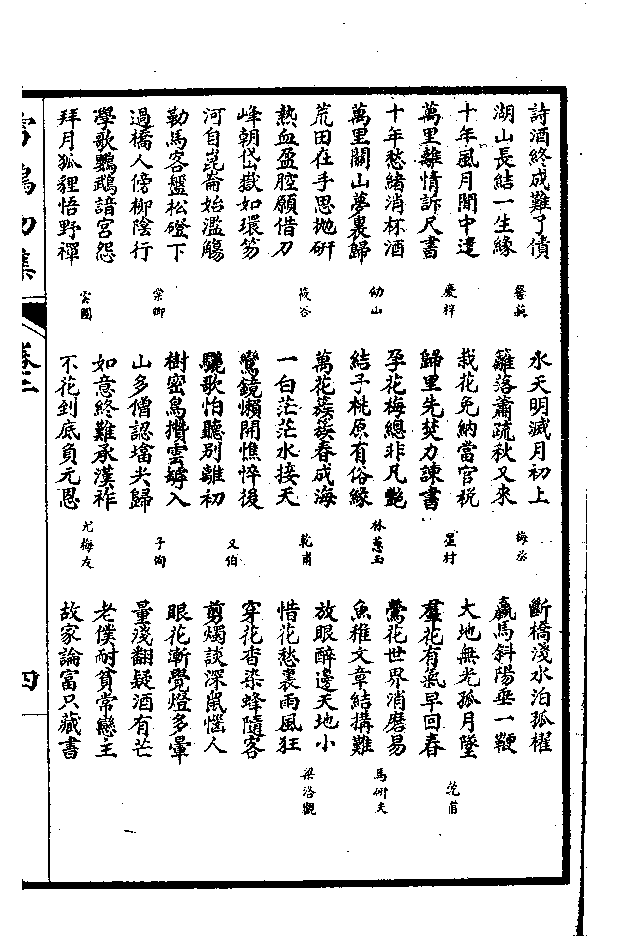 詩酒終成難了債
湖山長結一生緣
十年風月閒中遣
萬里離情訴尺書
慶梓
十年愁緒消杯酒
萬里關山夢裏歸
幼山
荒田在手思拋研
熱血盈腔願借刀
筱谷
峰朝岱嶽如環笏
河自崑崙始濫觴
勒馬客盤松磴下
過橋人傍柳陰行
棠卿
學歌鸚鵡諳宮怨
拜月狐貍悟野禪
雲圃
水天明滅月初上
籬落蕭疏秋又來
梅丞
栽花免納當官稅
歸里先焚力諫書
星村
孕花梅總非凡艷
結子桃原有俗緣
林蕙玉
萬花蔟蔟春成海
一白茫茫水接天
乾甫
鸞鏡懶開憔悴後
驪歌怕聽別離初
又伯
樹密鳥攢雲罅入
山多僧認墖尖歸
子絢
如意終難承漢祚
不花到底負元恩
尤梅友
斷橋淺水泊孤櫂
羸馬斜陽垂一鞭
大地無光孤月墜
羣花有氣早回春
鶯花世界消磨易
魚稚文章結搆難
馬衎夫
放眼醉邊天地小
惜花愁裏雨風狂
梁洛觀
穿花香染蜂隨客
剪燭談深鼠慍人
眼花漸覺燈多暈
量淺翻疑酒有芒
老僕耐貧常戀主
故家論富只藏書
雪鴻初集
卷二
四